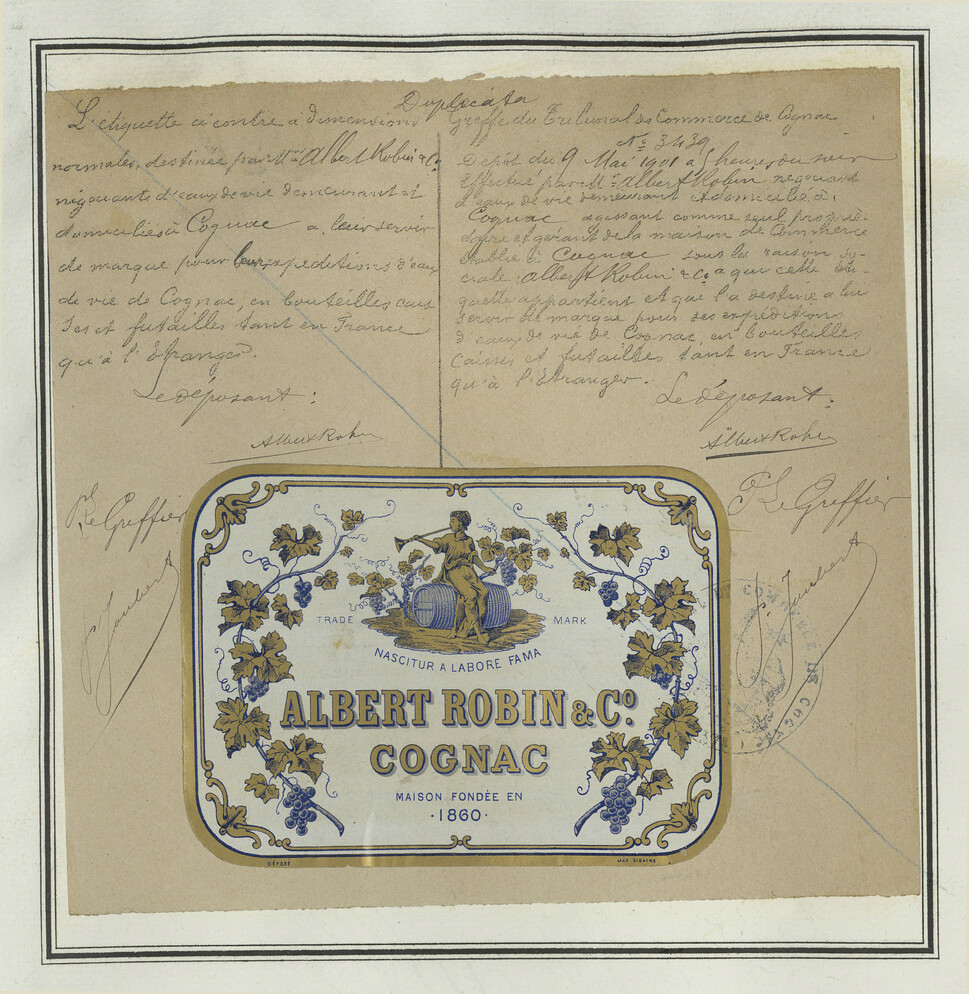 Duplicata
L'étiquette ci contre a dimensions
normales, destinée par Mrs Albert Robin & Co
négociants d'eaux de vie demeurant et
domiciliés à Cognac a leur servir
de marque pour leurs expéditions d'eaux
de vie de Cognac, en bouteilles cais
ses et futailles tant en France
qu'à l'Etranger.
Le déposant :
Albert Robin
Le Greffier
Joubert
Greffe du Tribunal de Commerce de Cognac
No 3439
Dépôt du 9 Mai 1901 à 5 heures du soir
Effectué par Mr Albert Robin négociant
d'eaux de vie demeurant et domicilié à
Cognac agissant comme seul proprié-
taire et gérant de la maison de Commerce
établie à Cognac sous la raison so-
ciale Albert Robin & Co a qui cette éti-
quette appartient et qui l'a destiné a lui
servir de marque pour ses expéditions
d'eaux de vie de Cognac, en bouteilles
caisses et futailles tant en France
qu'à l'Etranger.
Le déposant :
Albert Robin
Le Greffier
Joubert
COMMERCE DE COGNAC
TRADE MARK
NASCITUR A LABORE FAMA
ALBERT ROBIN & Co.
COGNAC
MAISON FONDÉE EN
·1860·
DÉPOSÉ